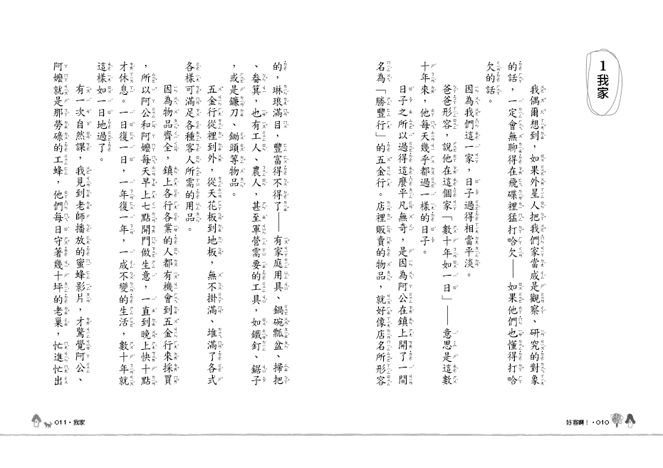 1 我家
我偶爾會想到，如果外星人把我們家當成是觀察、研究的對象
的話，一定會無聊得在飛碟裡猛打哈欠——如果他們也懂得打哈
欠的話。
因為我們這一家，日子過得相當平淡。
爸爸形容，說他在這個家「數十年如一日」——意思是這數
十年來，他每天幾乎都過一樣的日子。
日子之所以過得這麼平凡無奇，是因為阿公在鎮上開了一間
名為「勝豐行」的五金行。店裡販賣的物品，就好像店名所形容
好客啊！·010
的，琳琅滿目，豐富得不得了——有家庭用具、鍋碗瓢盆、掃把
、畚箕，也有工人、農人、甚至軍營需要的工具，如鐵釘、鋸子
，或是鐮刀、鋤頭等物品。
五金行從裡到外，從天花板到地板，無不掛滿、堆滿了各式
各樣可滿足各種客人所需的用品。
因為物品齊全，鎮上各行各業的人都有機會到五金行來採買
，所以阿公和阿嬤每天早上七點開門做生意，一直到晚上快十點
才休息。一日復一日，一年復一年，一成不變的生活，數十年就
這樣如一日地過了。
有一次自然課，我見到老師播放的蜜蜂影片，才驚覺阿公、
阿嬤就是那勞碌的工蜂，他們每日守著幾十坪的老巢，忙進忙出
011·我家